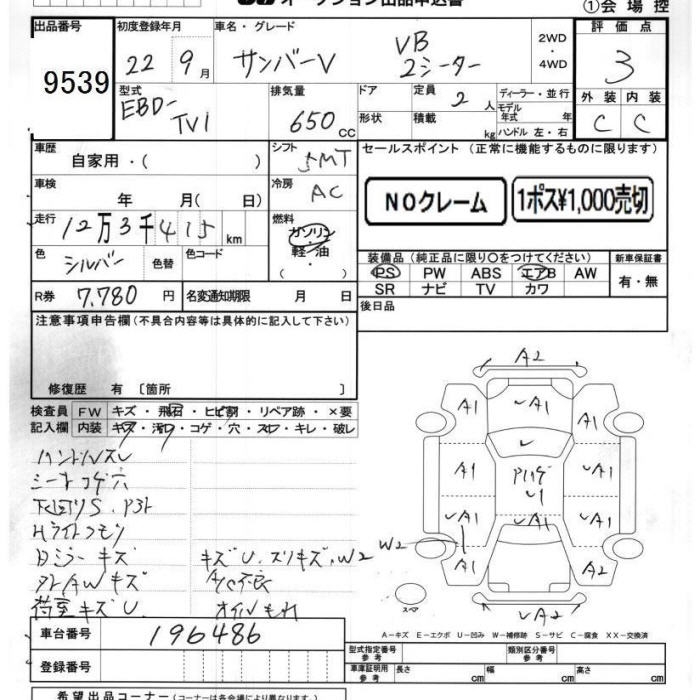 オークション出品申込書
①会場控
出品番号
9539
初度登録年月
22 9月
車名・グレード
サンバーV VB 2シーター
2WD・4WD
評価点
3
外装 内装
C C
型式
EBD-TV1
排気量
650 CC
ドア
形状
定員 2 人
積載 kg
ディーラー・並行
モデル年式 年
ハンドル 左・右
車歴
自家用・( )
シフト 5MT
セールスポイント(正常に機能するものに限ります)
NOクレーム
1ポス¥1,000売切
車検
年 月( 日)
冷房 AC
走行
12万3千415km
燃料
ガソリン
軽・油
( ・ )
色 シルバー
色替
色コード
装備品(純正品に限り〇をつけてください)
新車保証書
PS PW ABS エアB AW
有・無
SR ナビ TV カワ
R券 7,780円
名変通知期限 月 日
後日品
注意事項申告欄(不具合内容等は具体的に記入して下さい)
修復歴 有〔箇所 〕
検査員記入欄
FW キズ・飛石・ヒビ割・リペア跡・×要
内装 キズ・汚れ・コゲ・穴・スレ・キレ・破レ
ハンドルスレ
シートコゲ穴
下廻りS、
Hライトクモリ
Dミラーキズ
キズU、スリキズ、W2
外AWキズ
A/C不良
荷室キズU
オイルもれ
A2
A1 A1 A1
A1 A1
A1 A1
W2
A1 A2
A2
スペア
A-キズ E-エクボ U-凹み W-補修跡 S-サビ C-腐食 XX-交換済
車台番号
196486
登録番号
型式指定番号 参考
類別区分番号 参考
車庫証明用 参考
長さ cm
幅 cm
高さ cm
希望出品コーナー(コーナーは各会場により異なります)